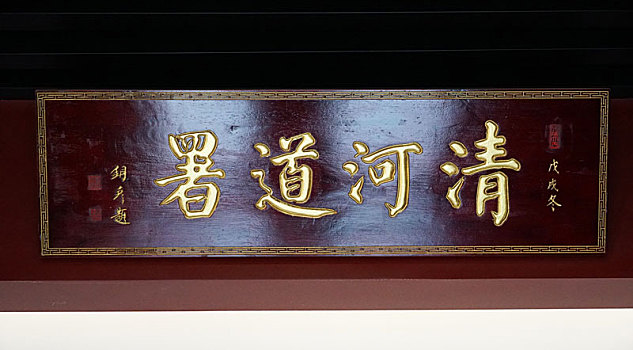 戊戌冬
清河道署